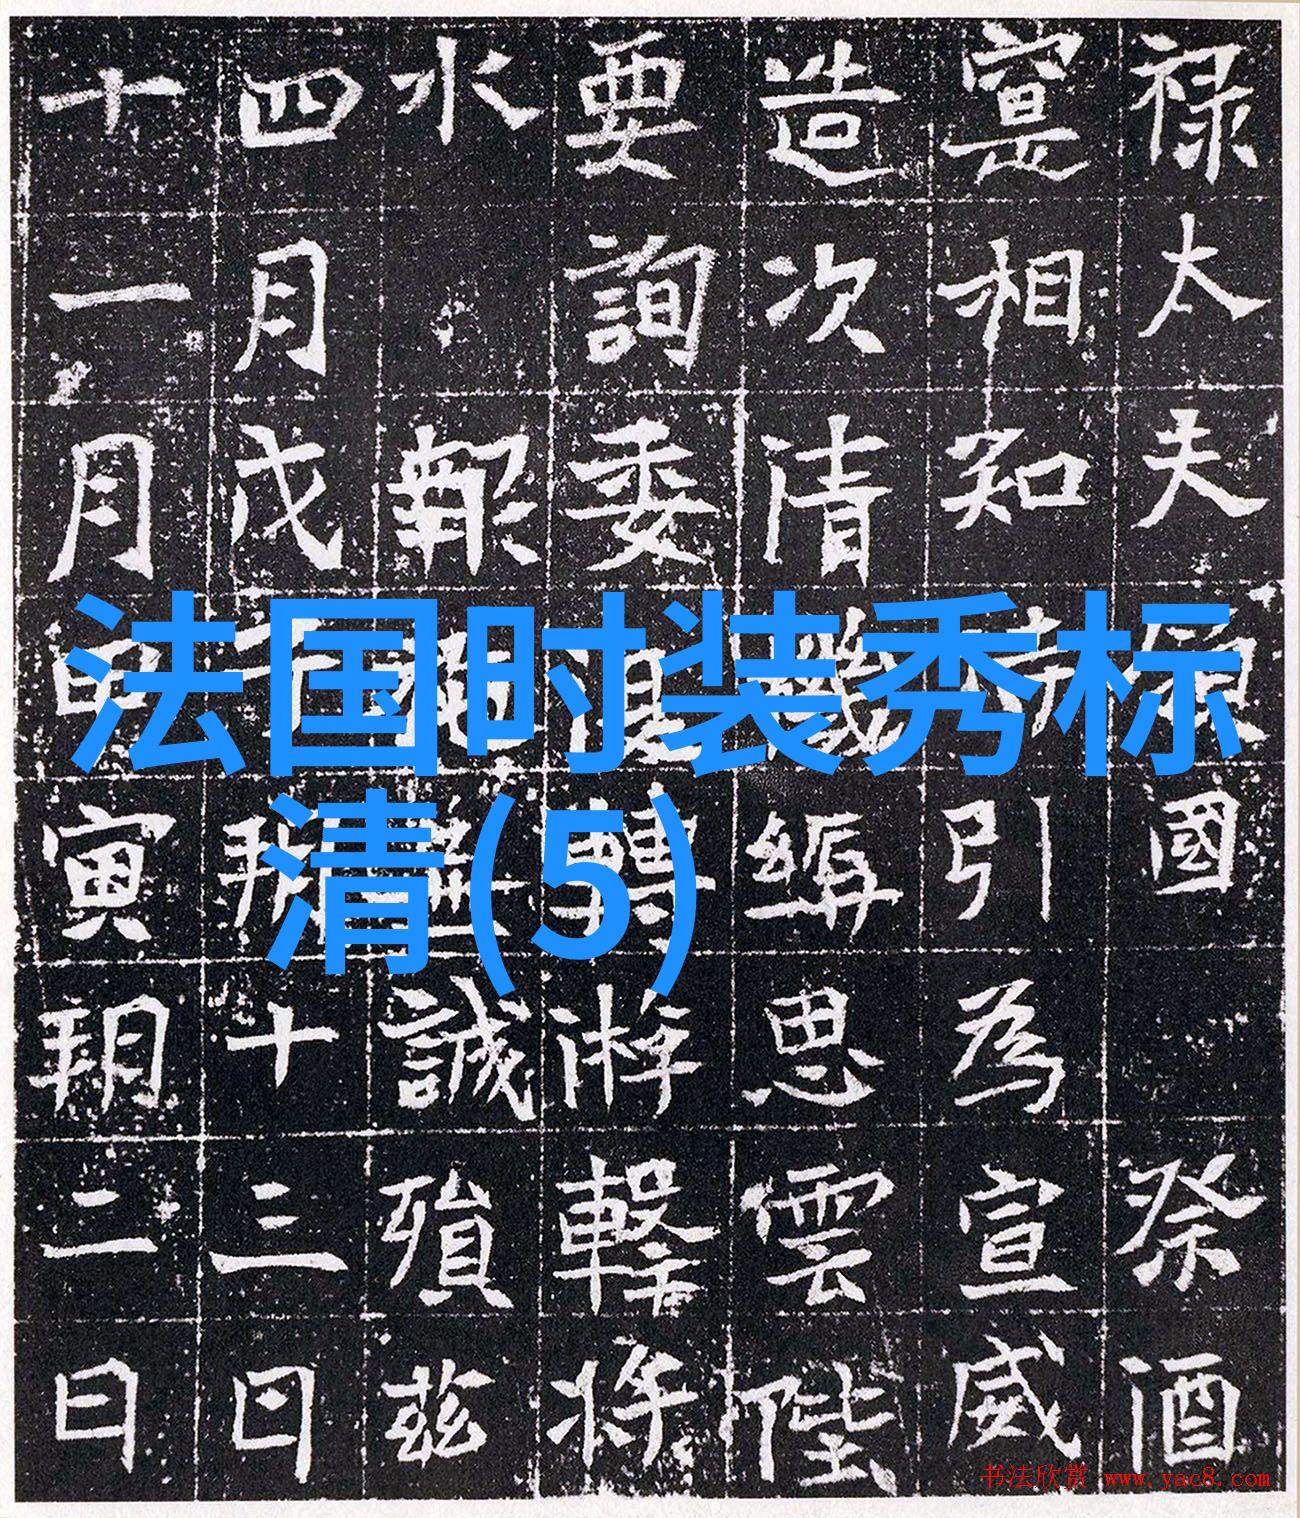 禄太夫國祭酒
寔相知引為宣威
造次清思雲陛
要詢委轉游擊將
水報誠殞茲
四月戊子朔十三日
十一月甲寅朔二日
法国时装秀标
清(5)
书法欣赏 www.yac8.com